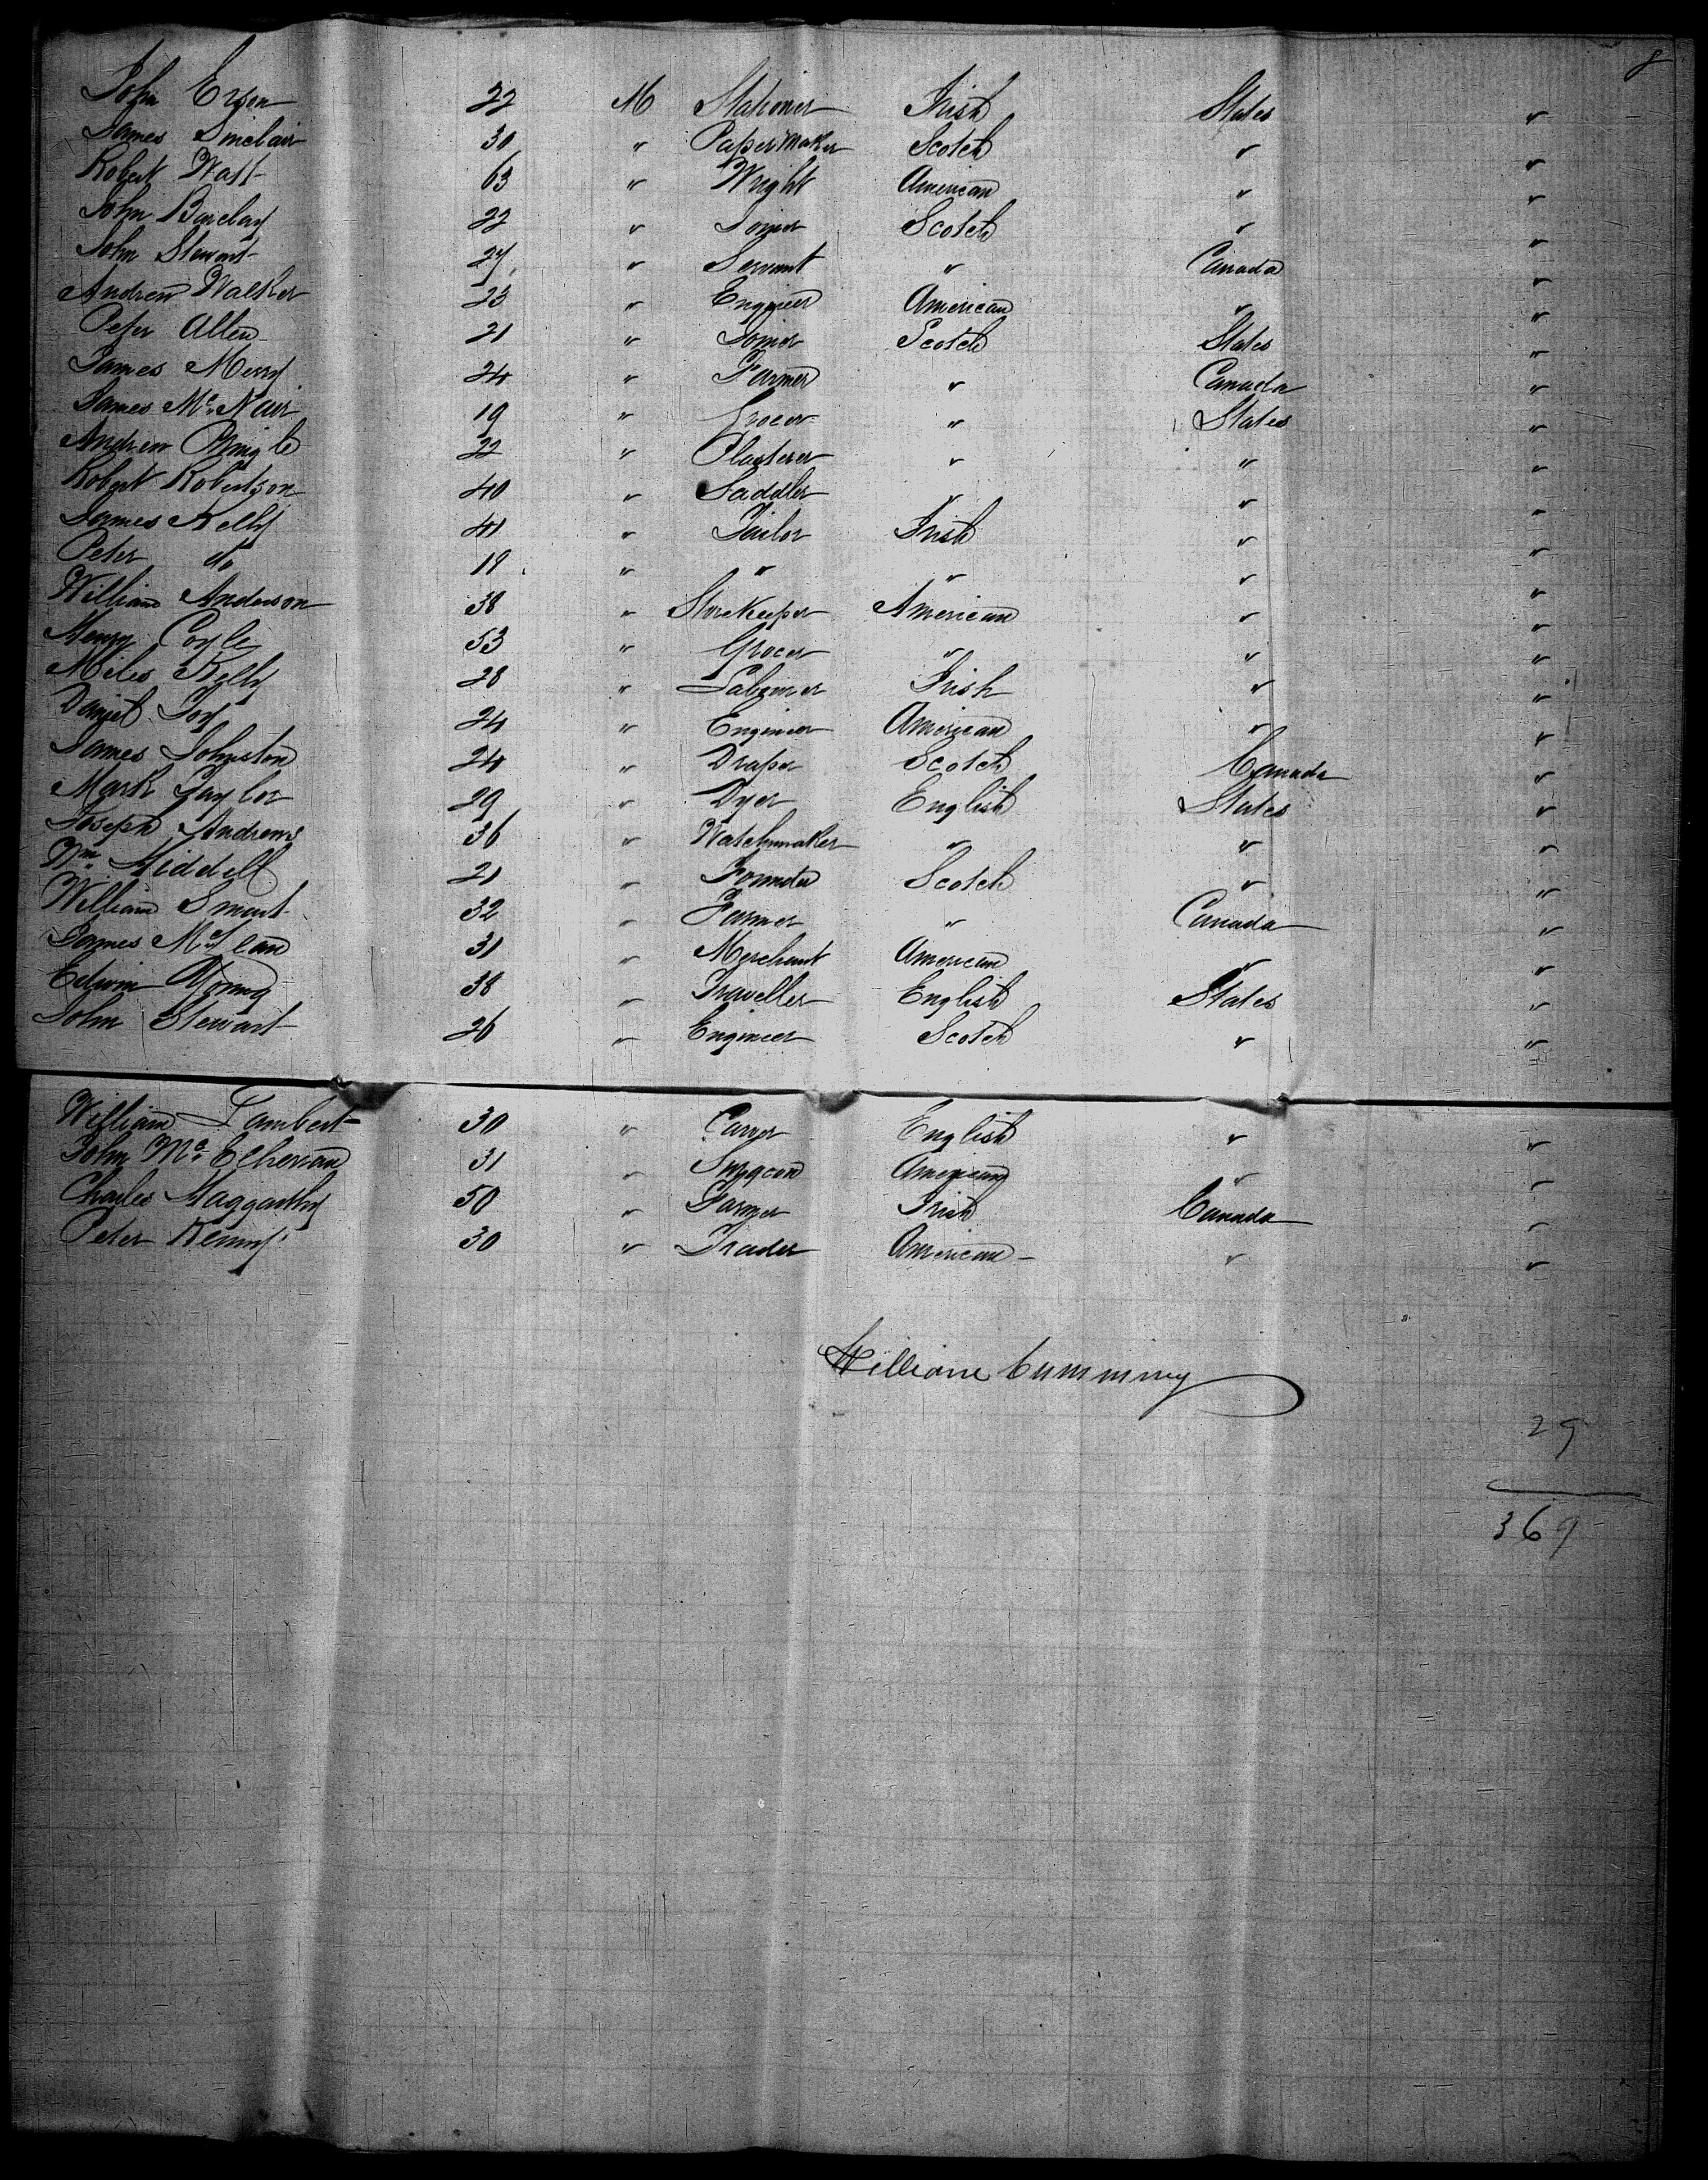 8
John Erson 22 M Stationer Irish States "
James Sinclair 30 " Paper Maker Scotch " "
Robert Watt 63 " Wright American " "
John Barclay 22 " Joiner Scotch " "
John Stewart 27 " Servant " Canada "
Andrew Walker 23 " Engineer American " "
Peter Allen 21 " Joiner Scotch States "
James Merry 24 " Farmer " Canada "
James McNair 19 " Grocer " States "
Andrew Pringle 22 " Plasterer " " "
Robert Robertson 40 " Saddler " " "
James Kelly 41 " Tailor Irish " "
Peter do 19 " " " " "
William Anderson 38 " Storekeeper American " "
Henry Coyle 53 " Grocer " " "
Miles Kelly 28 " Labourer Irish " "
Daniel 24 " Engineer American " "
James Johnston 24 " Draper Scotch Canada "
Mark Taylor 29 " Dyer English States "
Joseph Andrews 36 " Watchmaker " " "
Wm Riddell 21 " Founder Scotch " "
William Smart 32 " Farmer " Canada "
James 31 " Merchant American " "
Edwin Young 38 " Traveller English States "
John Stewart 26 " Engineer Scotch " "
William Lambert 30 " Carver English " "
John McElheran 31 " Surgeon American " "
Charles Haggarthy 50 " Farmer Irish Canada "
Peter Kenny 30 " Trader American " "
William Cumming
29
369